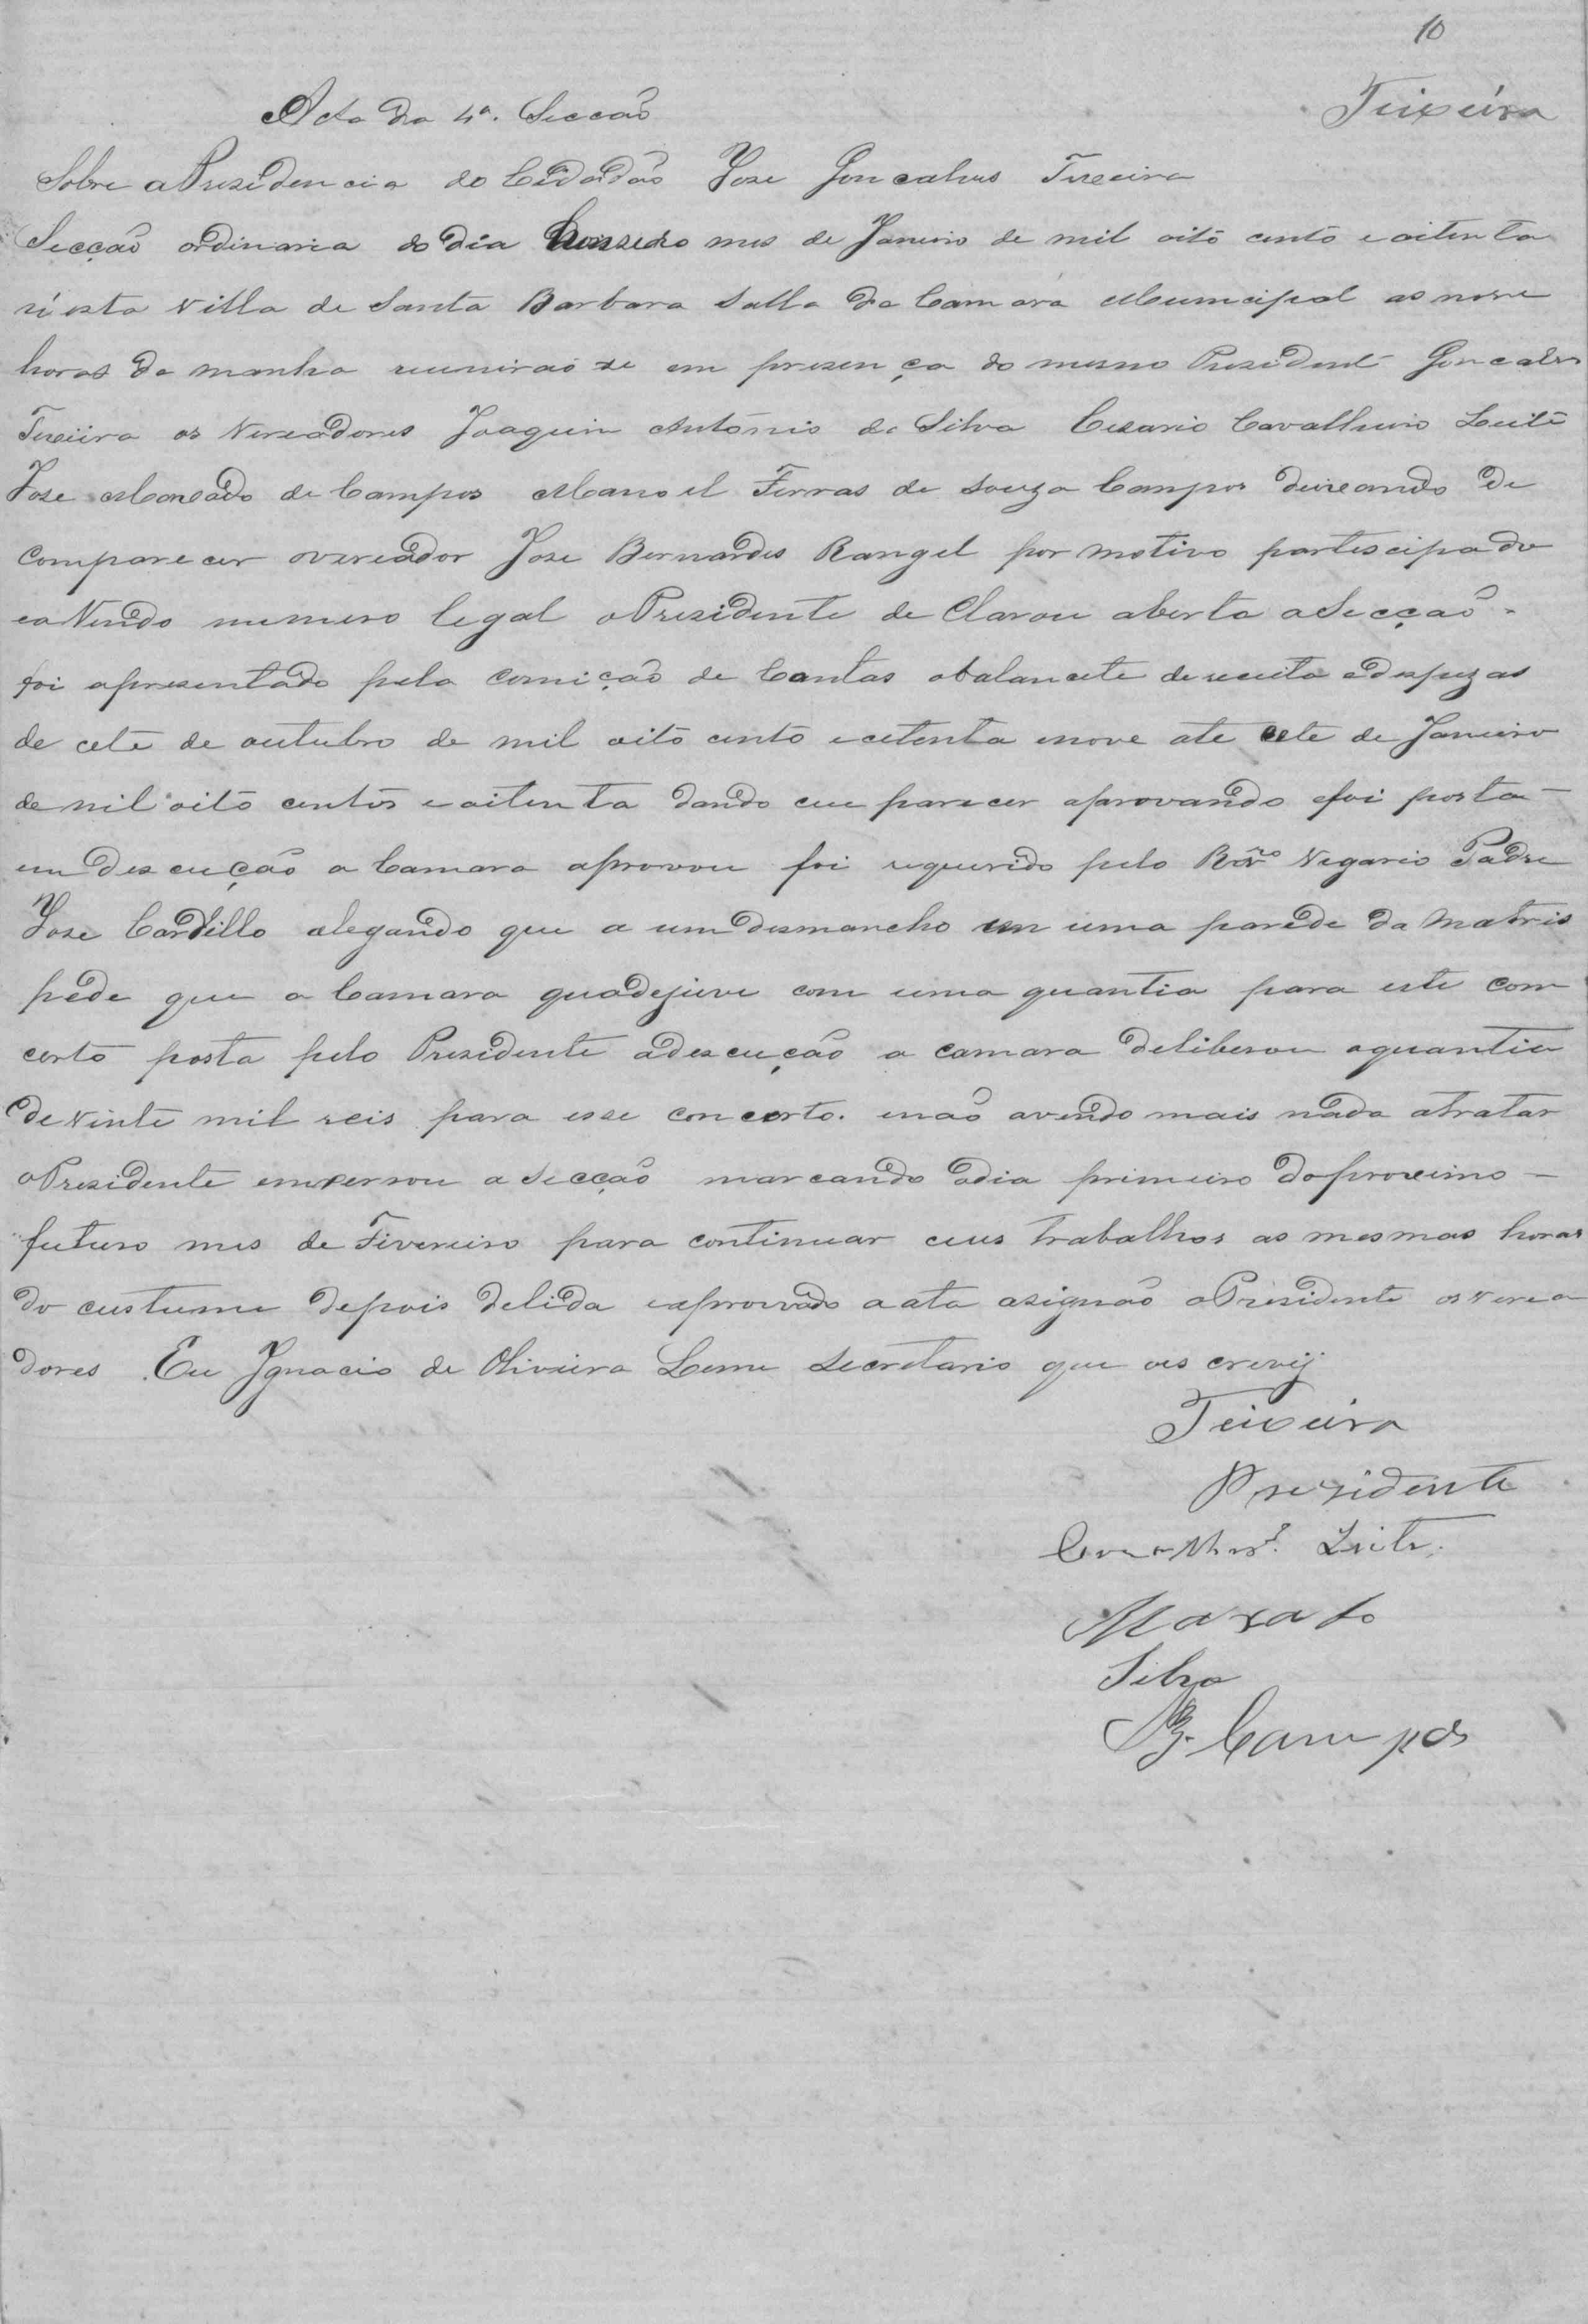 10
Teixeira
Acta da 4ª. Seccaõ
Sobre aPresidencia do Cidadaõ Jose Goncalves Teixeira
Secçaõ ordinaria do dia mes de Janeiro de mil oito cento e oitenta
n'esta Villa de Santa Barbara Salla da Camara Municipal as nove
horas da manha reuniraõ se em presença do mesmo Presidente Goncalves
Teixeira os Vereadores Joaquim Antonio da Silva Cesario Cavalheiro Leite
Jose de Campos Manoel Ferras de Souza Campos deixando de
comparecer overeador Jose Bernardes Rangel por motivo partescipado
numero legal oPresidente de Clarou aberta aSecçaõ -
foi apresentado pela comiçaõ de Contas obalancete dereceita edespezas
de cete de outubro de mil oito cento e cetenta enove ate cete de Janeiro
de mil oito centos e oitenta dando ceu parecer aprovando efoi posta -
em descuçaõ a Camara aprovou foi requerido pelo Vegario Padre
Jose Cardillo alegando que a um desmancho em uma parede da Matris
pede que a Camara com uma quantia para este com
certo posta pelo Presidente adescuçaõ a camara deliberou aquantia
de Vinte mil reis para esse concerto. enaõ avendo mais nada atratar
oPresidente a secçaõ marcando odia primeiro doproximo -
futuro mes de Fivereiro para continuar ceus trabalhos as mesmas horas
do custume depois delida eaprovado a ata asignaõ oPresidente os verea
dores. Eu Ignacio de Oliveira Leme Secretario que os crevij
Teixeira
Presidente
Leite.
Silva
Campos